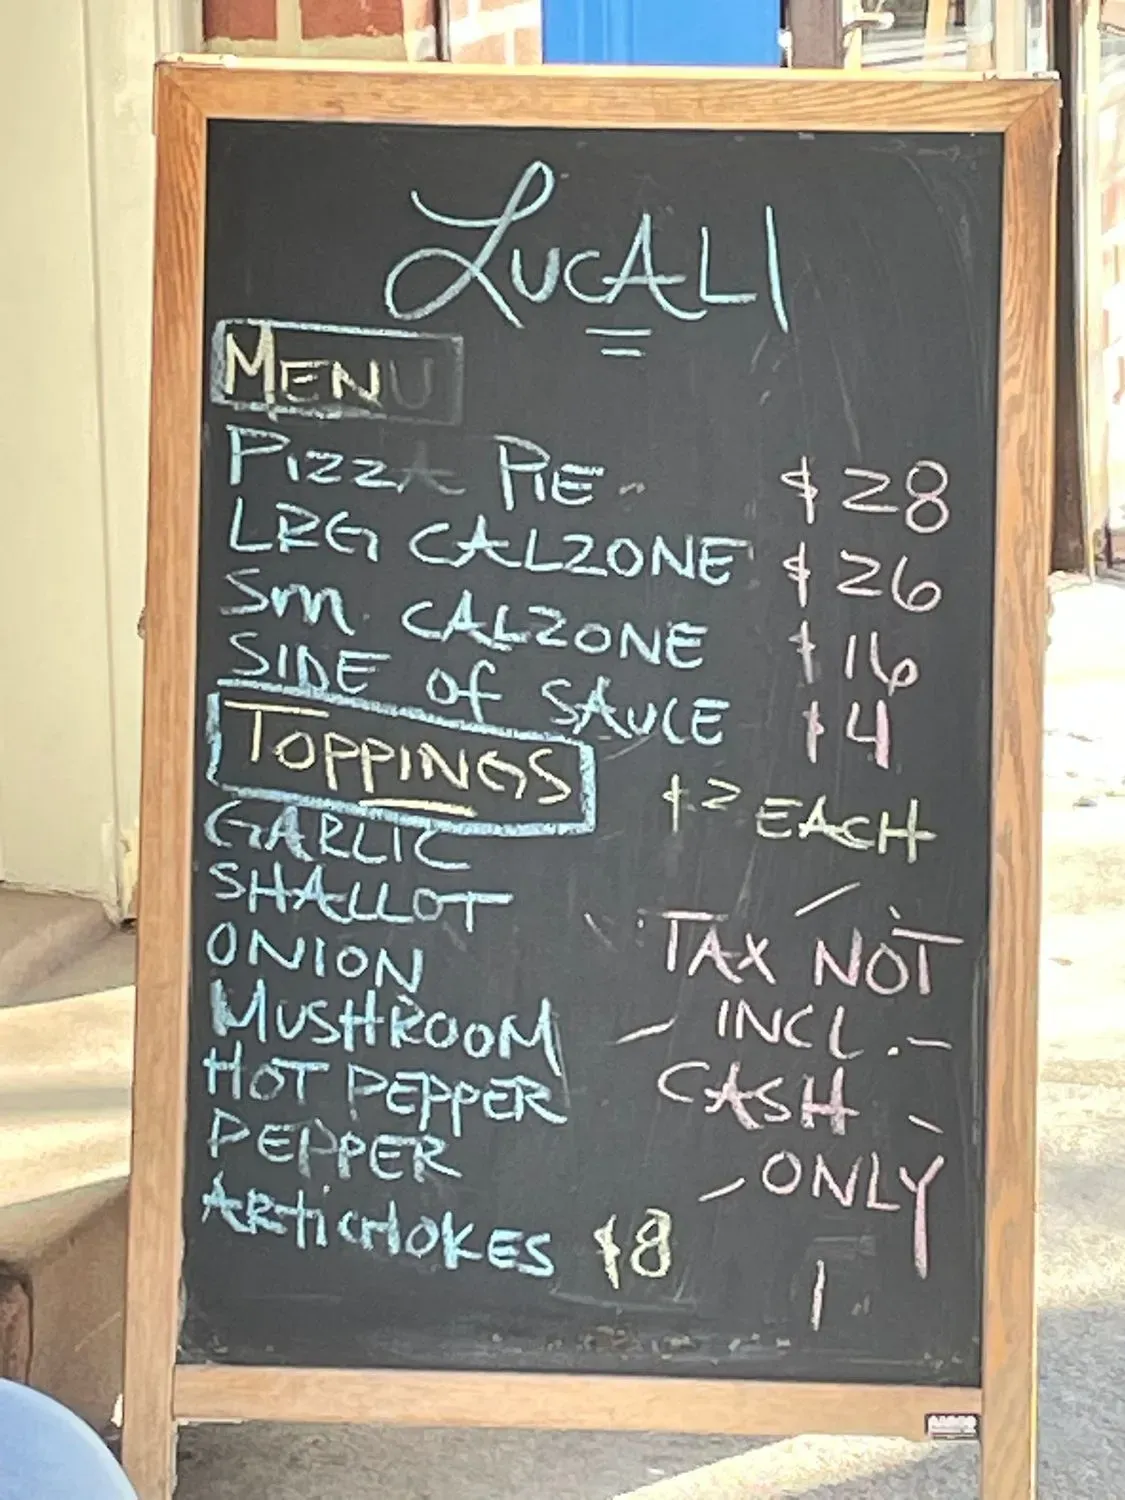 LUCALI
MENU
PIZZA PIE $28
LRG CALZONE $26
Sm CALZONE $16
SIDE Of SAUCE $4
TOPPINGS $2 EACH
GARLIC
SHALLOT
ONION
MUSHROOM
HOT PEPPER
PEPPER
ARTiCHOKES $8
TAX NOT
INCL.
CASH
ONLY